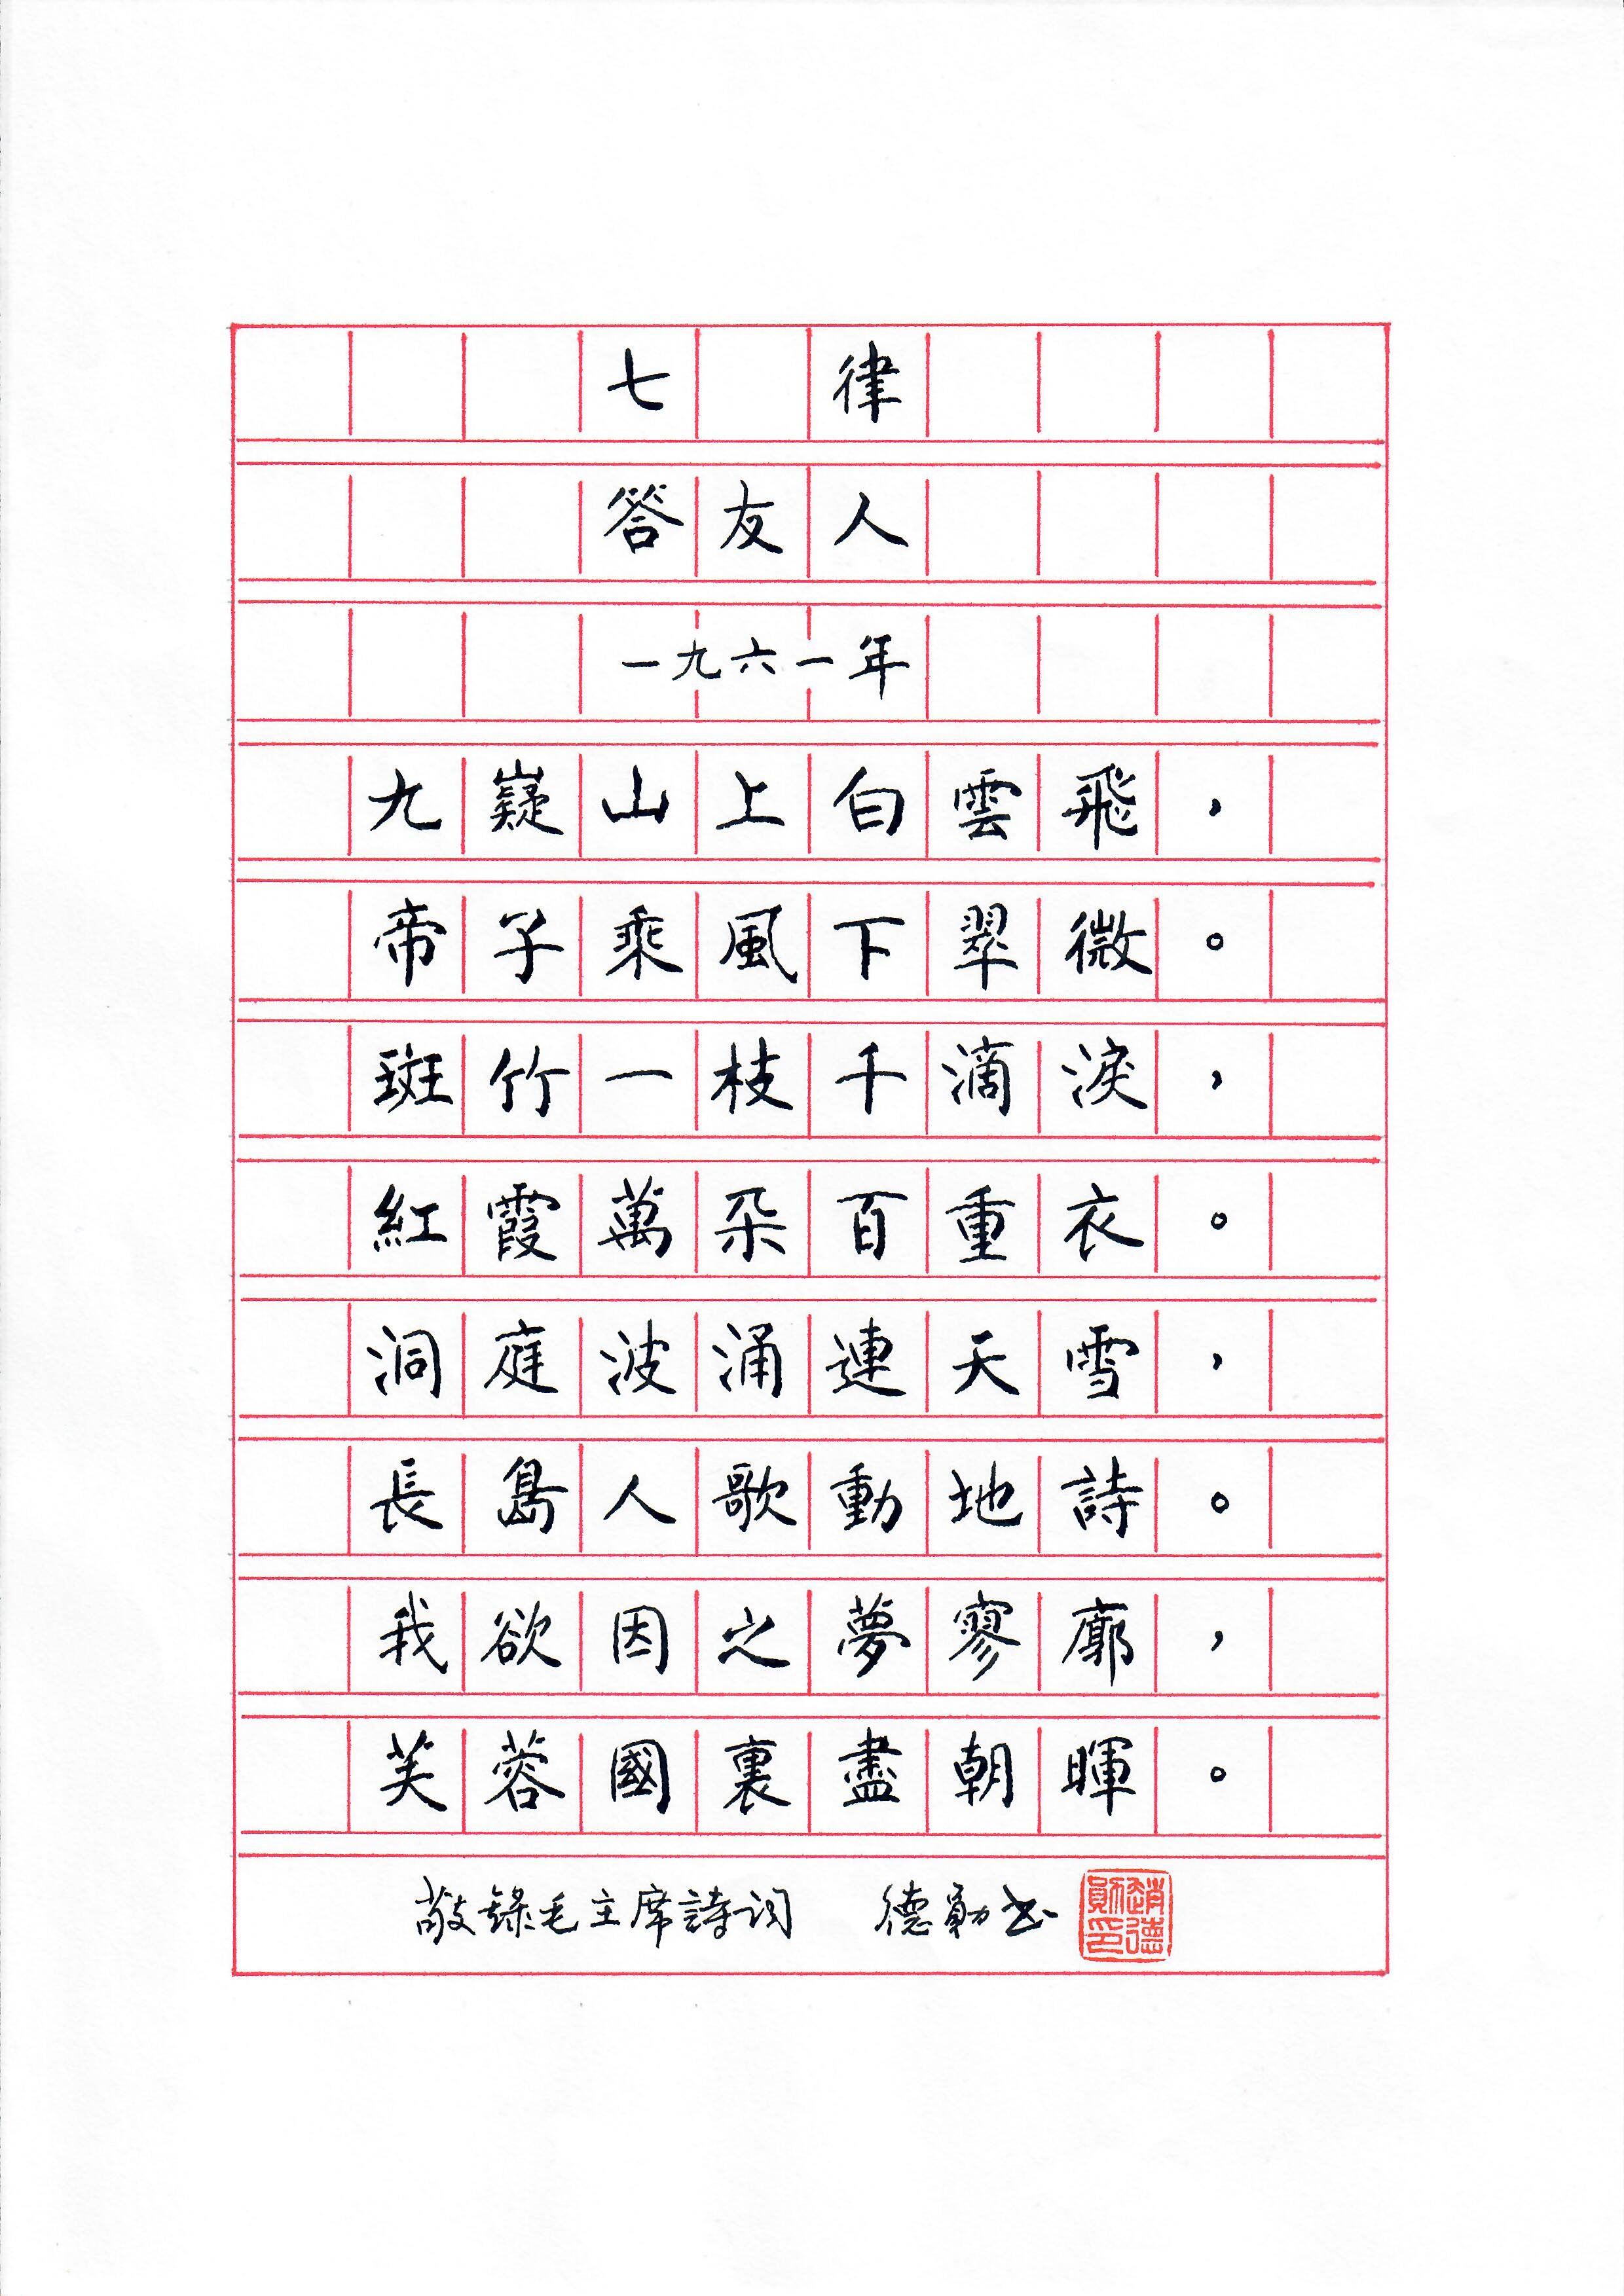 七律
答友人
一九六一年
九嶷山上白雲飛，
帝子乘風下翠微。
斑竹一枝千滴淚，
紅霞萬朵百重衣。
洞庭波涌連天雪，
長島人歌動地詩。
我欲因之夢寥廓，
芙蓉國裏盡朝暉。
敬錄毛主席詩詞 德勛书
趙德勛印